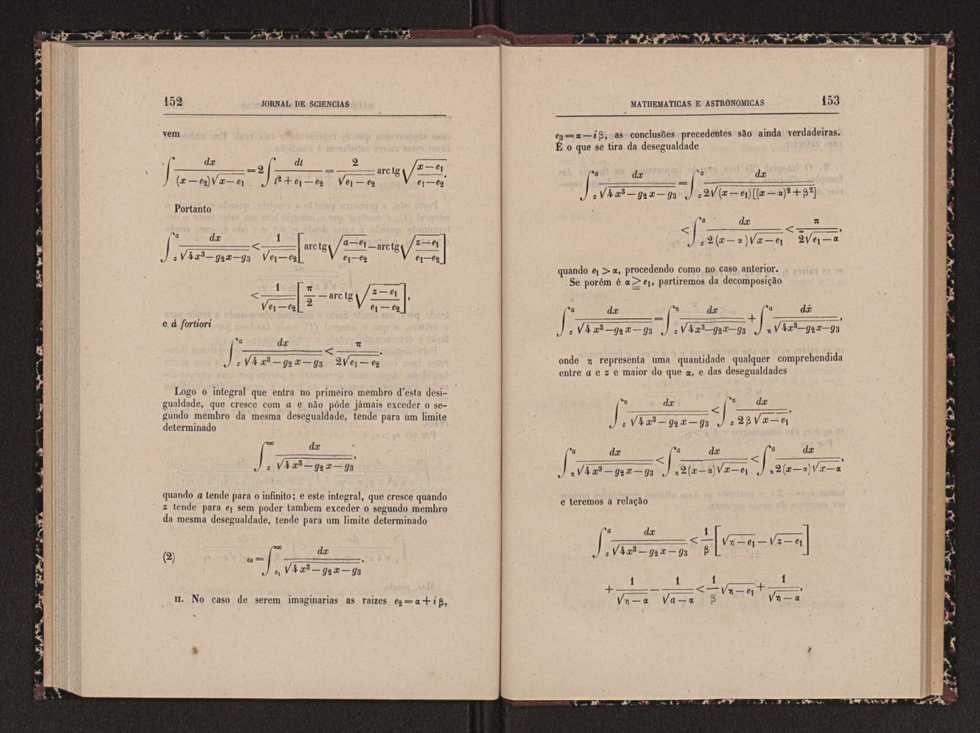 152 JORNAL DE SCIENCIAS
vem
∫ dx / ((x — e₂)√(x — e₁)) = 2 ∫ dt / (t² + e₁ — e₂) = 2 / √(e₁ — e₂) arc tg √((x — e₁) / (e₁ — e₂)).
Portanto
∫_z^a dx / √(4x³ — g₂x — g₃) < 1 / √(e₁—e₂) [arc tg √((a—e₁) / (e₁—e₂)) — arc tg √((z—e₁) / (e₁—e₂))]
< 1 / √(e₁—e₂) [π / 2 — arc tg √((z — e₁) / (e₁ — e₂))],
e á fortiori
∫_z^a dx / √(4x³ — g₂x — g₃) < π / (2√(e₁ — e₂)).
Logo o integral que entra no primeiro membro d'esta desi-
gualdade, que cresce com a e não póde jámais exceder o se-
gundo membro da mesma desegualdade, tende para um limite
determinado
∫_z^∞ dx / √(4x³ — g₂x — g₃),
quando a tende para o infinito; e este integral, que cresce quando
z tende para e₁ sem poder tambem exceder o segundo membro
da mesma desegualdade, tende para um limite determinado
(2) ω = ∫_{e₁}^∞ dx / √(4x³ — g₂x — g₃).
II. No caso de serem imaginarias as raizes e₂ = α + iβ,
MATHEMATICAS E ASTRONOMICAS 153
e₃ = α — iβ, as conclusões precedentes são ainda verdadeiras.
É o que se tira da desegualdade
∫_z^a dx / √(4x³ — g₂x — g₃) = ∫_z^a dx / (2√((x — e₁)[(x — α)² + β²]))
< ∫_z^a dx / (2(x — α)√(x — e₁)) < π / (2√(e₁ — α)),
quando e₁ > α, procedendo como no caso anterior.
Se porém é α ≧ e₁, partiremos da decomposição
∫_z^a dx / √(4x³ — g₂x — g₃) = ∫_z^η dx / √(4x³—g₂x—g₃) + ∫_η^a dx / √(4x³—g₂x—g₃),
onde η representa uma quantidade qualquer comprehendida
entre a e z e maior do que α, e das desegualdades
∫_z^η dx / √(4x³ — g₂x — g₃) < ∫_z^η dx / (2β√(x — e₁)),
∫_η^a dx / √(4x³ — g₂x — g₃) < ∫_η^a dx / (2(x—α)√(x—e₁)) < ∫_η^a dx / (2(x—α)√(x—α))
e teremos a relação
∫_z^a dx / √(4x³ — g₂x — g₃) < 1 / β [√(η — e₁) — √(z — e₁)]
+ 1 / √(η — α) — 1 / √(a — α) < 1 / β √(η — e₁) + 1 / √(η — α),